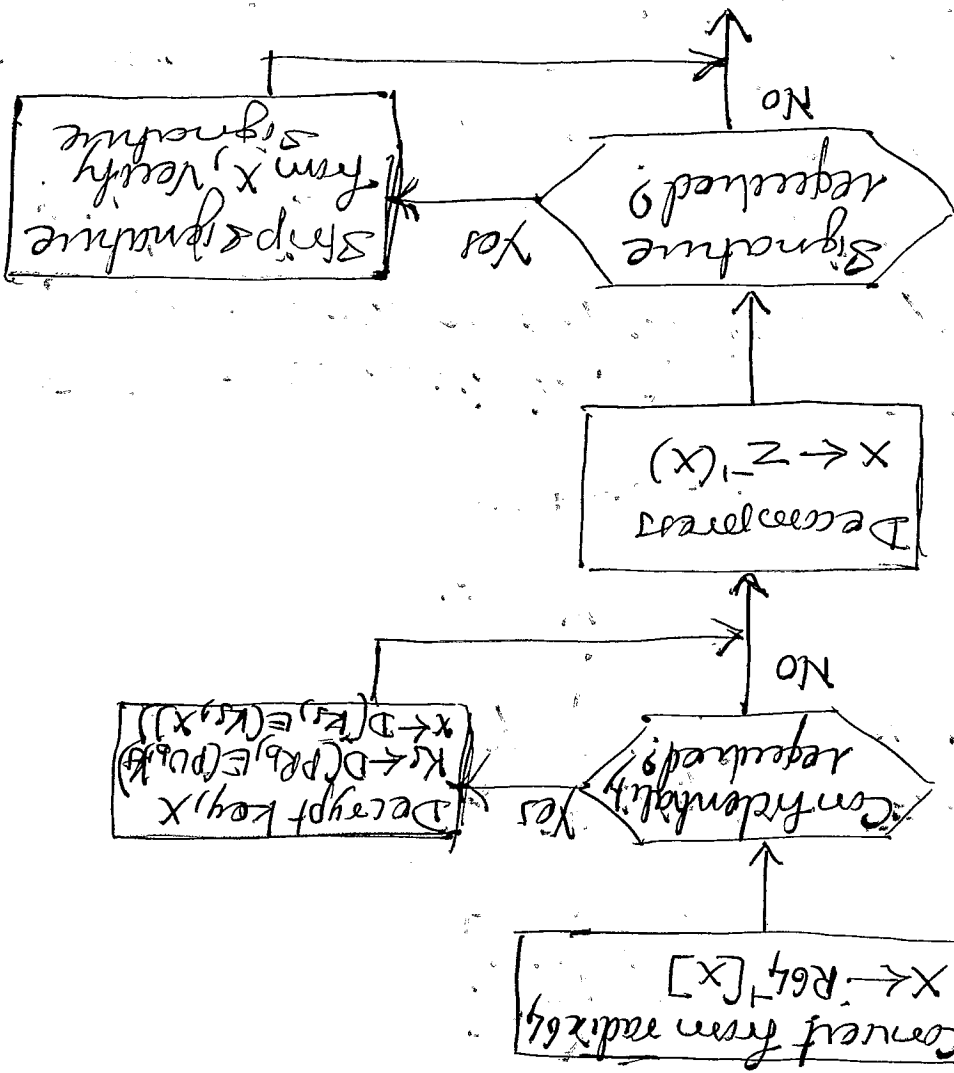 Convert from radix 64
X ← R64⁻¹[X]
Confidentiality
required?
Yes
Decrypt key, X
Ks ← D(PRb, E(PUb, Ks))
X ← D(Ks, E(Ks, X))
No
Decompress
X ← Z⁻¹(X)
Signature
required?
Yes
Strip signature
from X, verify
signature
No